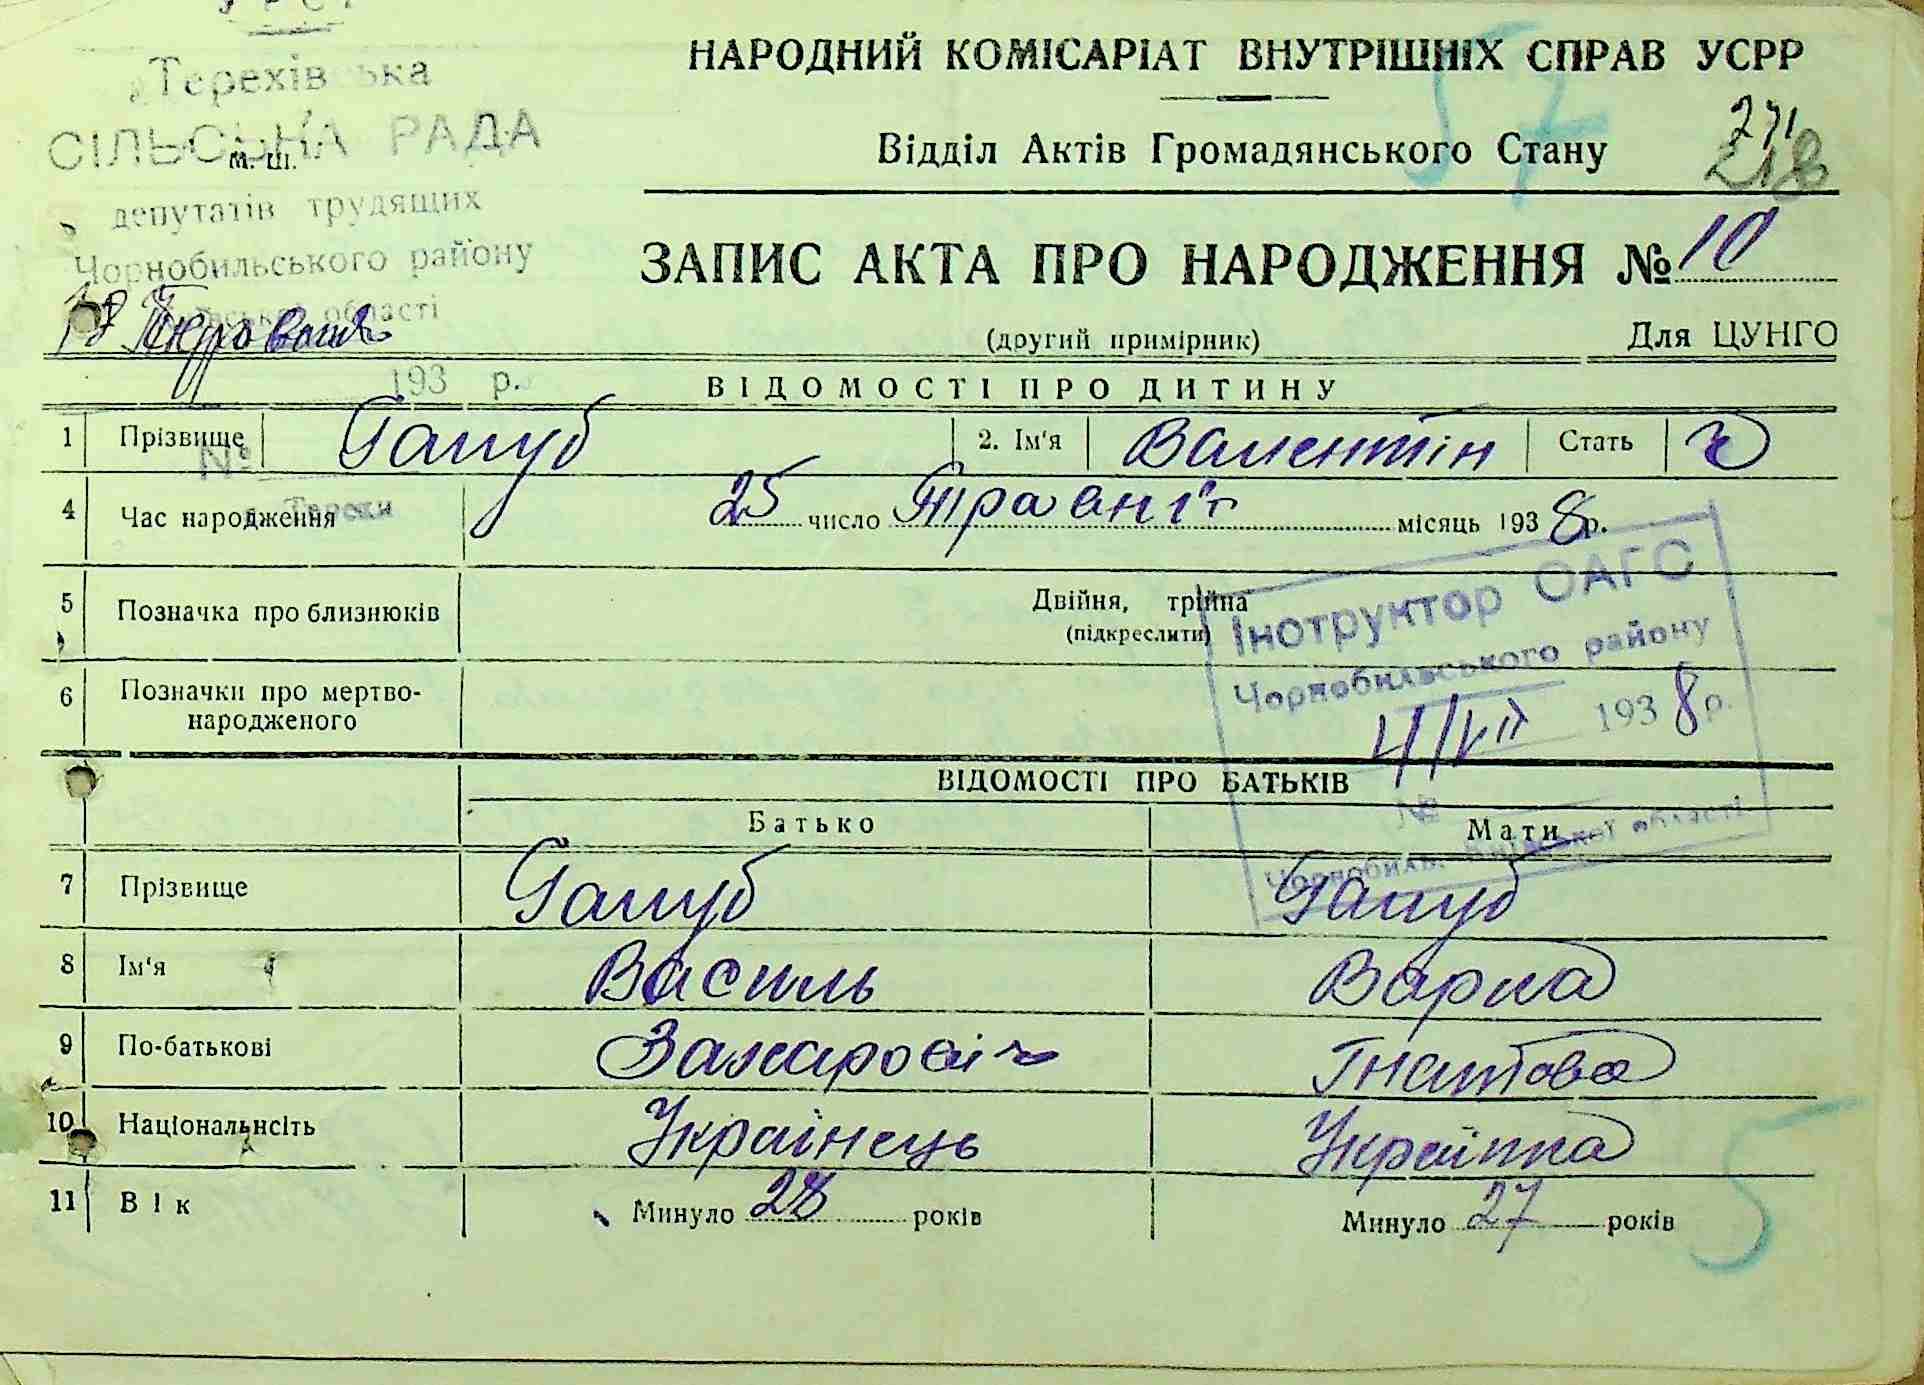 УРСР
Терехівська
СІЛЬСЬКА РАДА
м. ш.
депутатів трудящих
Чорнобильського району
області
193 р.
№
НАРОДНИЙ КОМІСАРІАТ ВНУТРІШНІХ СПРАВ УСРР
57
Відділ Актів Громадянського Стану
271
218
ЗАПИС АКТА ПРО НАРОДЖЕННЯ № 10
(другий примірник) Для ЦУНГО
ВІДОМОСТІ ПРО ДИТИНУ
1 Прізвище Галуб 2. Ім'я Валентін Стать Ч
4 Час народження 25 число Травня місяць 1938 р.
5 Позначка про близнюків Двійня, трійна
(підкреслити)
6 Позначки про мертво-
народженого
Інструктор ОАГС
Чорнобильського району
4/VII 1938 р.
№
Чорнобиль, Київської області
ВІДОМОСТІ ПРО БАТЬКІВ
Батько Мати
7 Прізвище Галуб Галуб
8 Ім'я Василь Варка
9 По-батькові Захаровіч Гнатова
10 Національнсіть Українець Українка
5
11 Вік Минуло 28 років Минуло 27 років